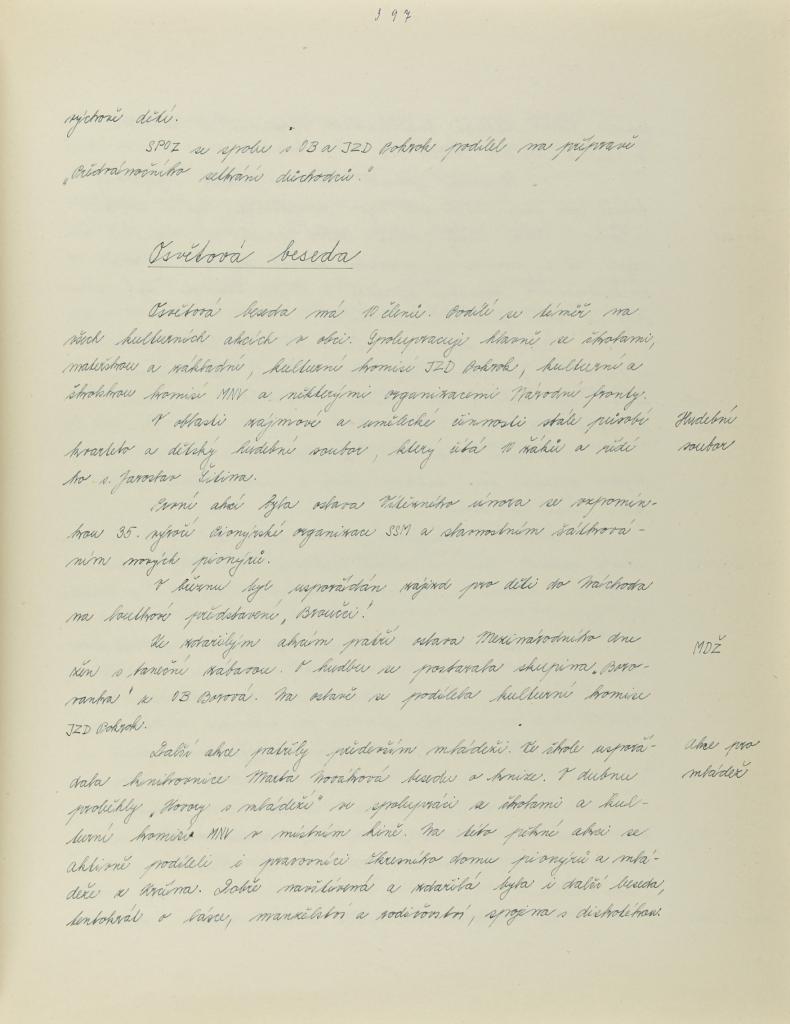 397
výchově dětí.
SPOZ se spolu s OB a JZD Pokrok podílel na přípravě
„Předvánočního setkání důchodců."
Osvětová beseda
Osvětová beseda má 10 členů. Podílí se téměř na
všech kulturních akcích v obci. Spolupracuje hlavně se školami,
mateřskou a základní, kulturní komisí JZD Pokrok, kulturní a
školskou komisí MNV a některými organizacemi Národní fronty.
V oblasti zájmové a umělecké činnosti stále působí
Hudební
kvarteto a dětský hudební soubor, který čítá 10 žáků a řídí
soubor
ho s. Jaroslav Šitina.
První akcí byla oslava Vítězného února se vzpomín-
kou 35. výročí Pionýrské organizace SSM a slavnostním šátková-
ním nových pionýrů.
V březnu byl uspořádán zájezd pro děti do Náchoda
na loutkové představení „Broučci!
Ke zdařilým akcím patří oslava Mezinárodního dne
MDŽ
žen s taneční zábavou. O hudbu se postarala skupina „Boro-
vanka" z OB Borová. Na oslavě se podílela kulturní komise
JZD Pokrok.
Další akce patřily především mládeži. Ve škole uspořá-
Akce pro
dala knihovnice Marta Nováková besedu o knize. V dubnu
mládež
proběhly „Hovory s mládeží" ve spolupráci se školami a kul-
turní komisí MNV v místním kině. Na této pěkné akci se
aktivně podíleli i pracovníci Okresního domu pionýrů a mlá-
deže z Krčína. Dobře navštívená a zdařilá byla i další beseda,
tentokrát o lásce, manželství a rodičovství, spojena s diskotékou.